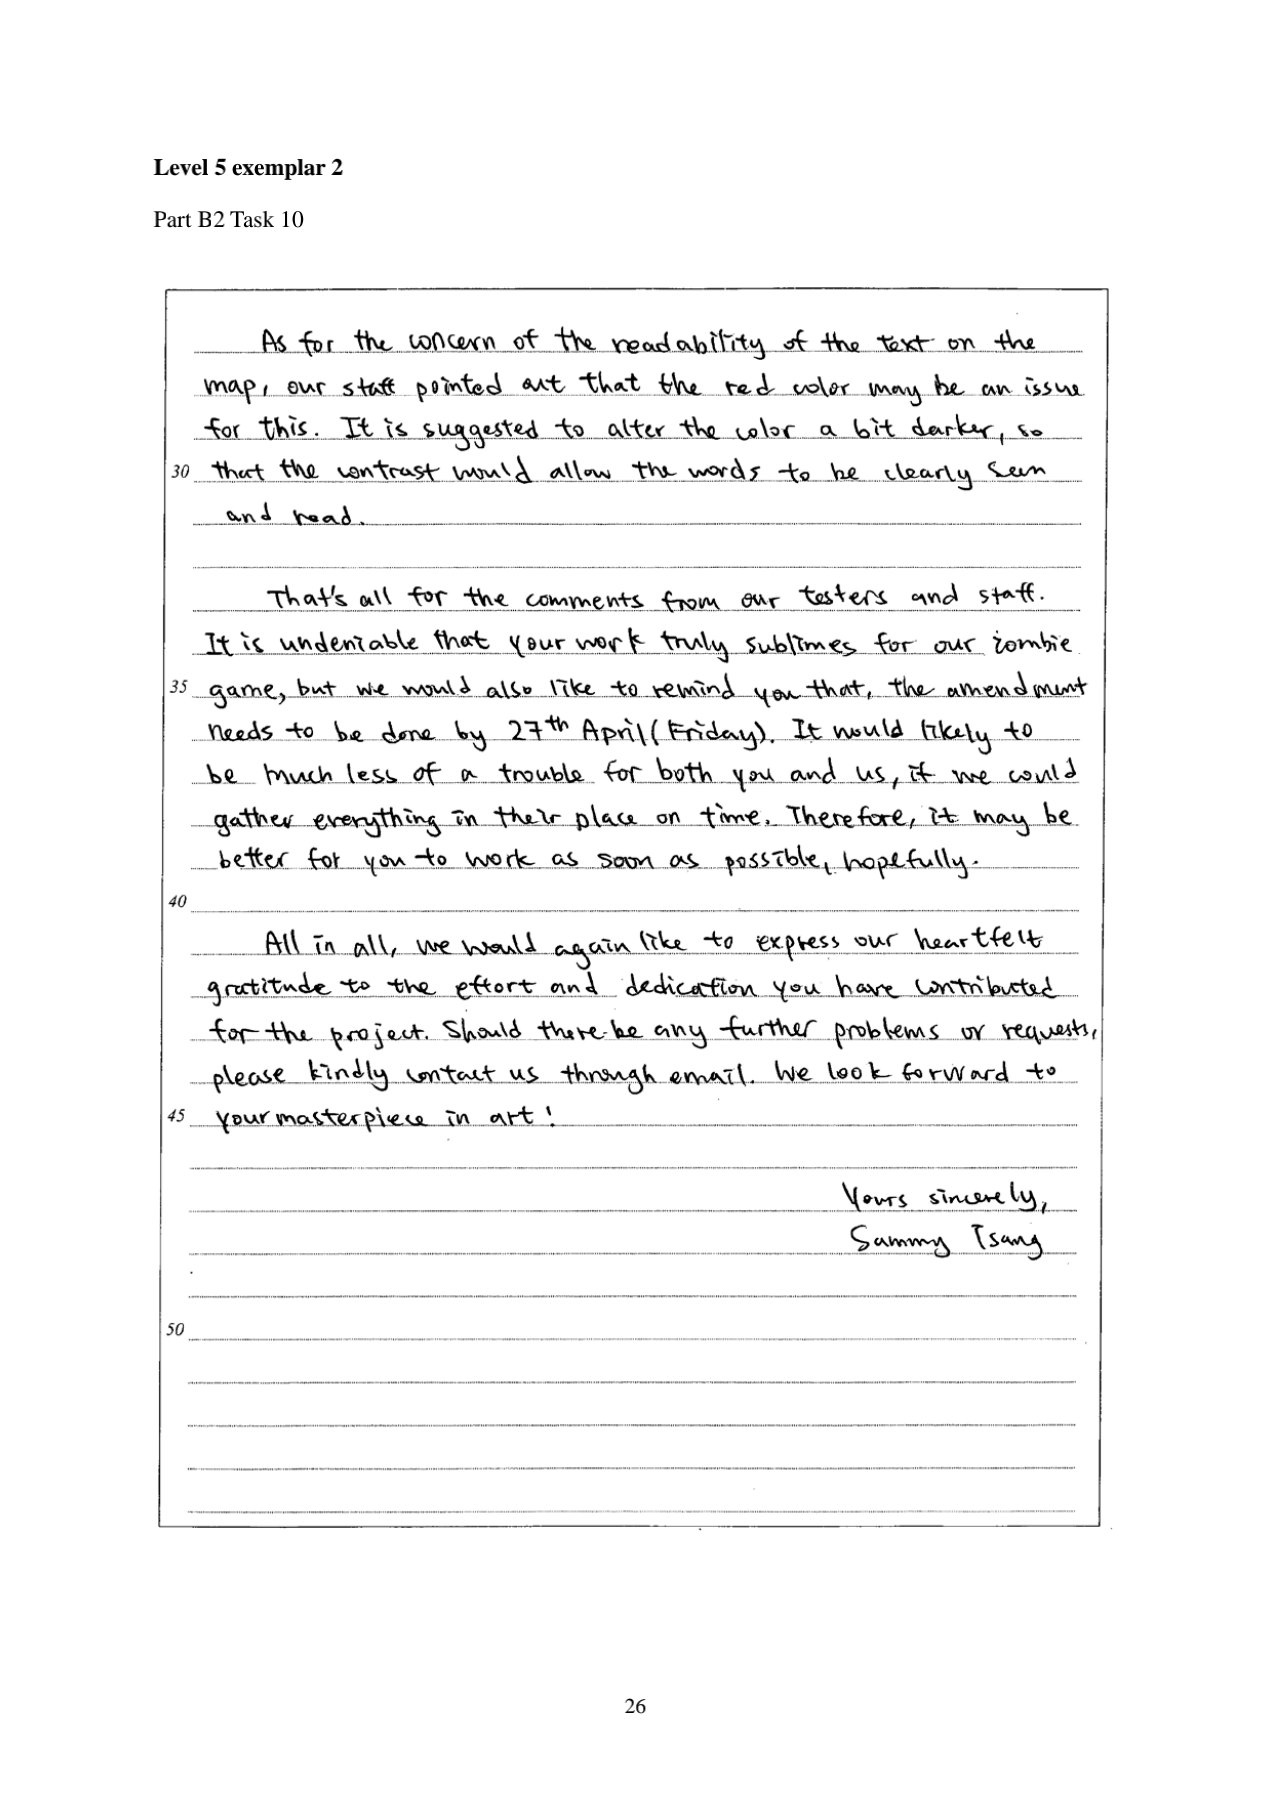 Level 5 exemplar 2
Part B2 Task 10
As for the concern of the readability of the text on the
map, our staff pointed out that the red color may be an issue
for this. It is suggested to alter the color a bit darker, so
30 that the contrast would allow the words to be clearly seen
and read.
That's all for the comments from our testers and staff.
It is undeniable that your work truly sublimes for our zombie
35 game, but we would also like to remind you that, the amendment
needs to be done by 27th April (Friday). It would likely to
be much less of a trouble for both you and us, if we could
gather everything in their place on time. Therefore, it may be
better for you to work as soon as possible, hopefully.
40
All in all, we would again like to express our heartfelt
gratitude to the effort and dedication you have contributed
for the project. Should there be any further problems or requests,
please kindly contact us through email. We look forward to
45 your masterpiece in art!
Yours sincerely,
Sammy Tsang
50
26